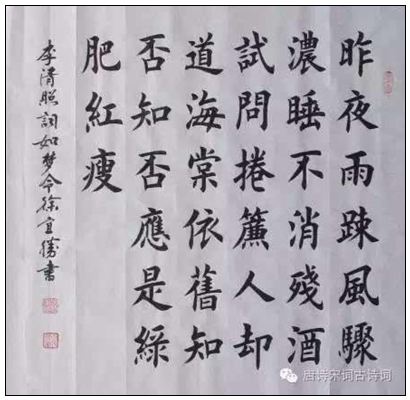 昨夜雨踈風驟
濃睡不消殘酒
試問捲簾人却
道海棠依舊知
否知否應是綠
肥紅瘦
李清照詞如梦令徐宜勝書
唐诗宋词古诗词